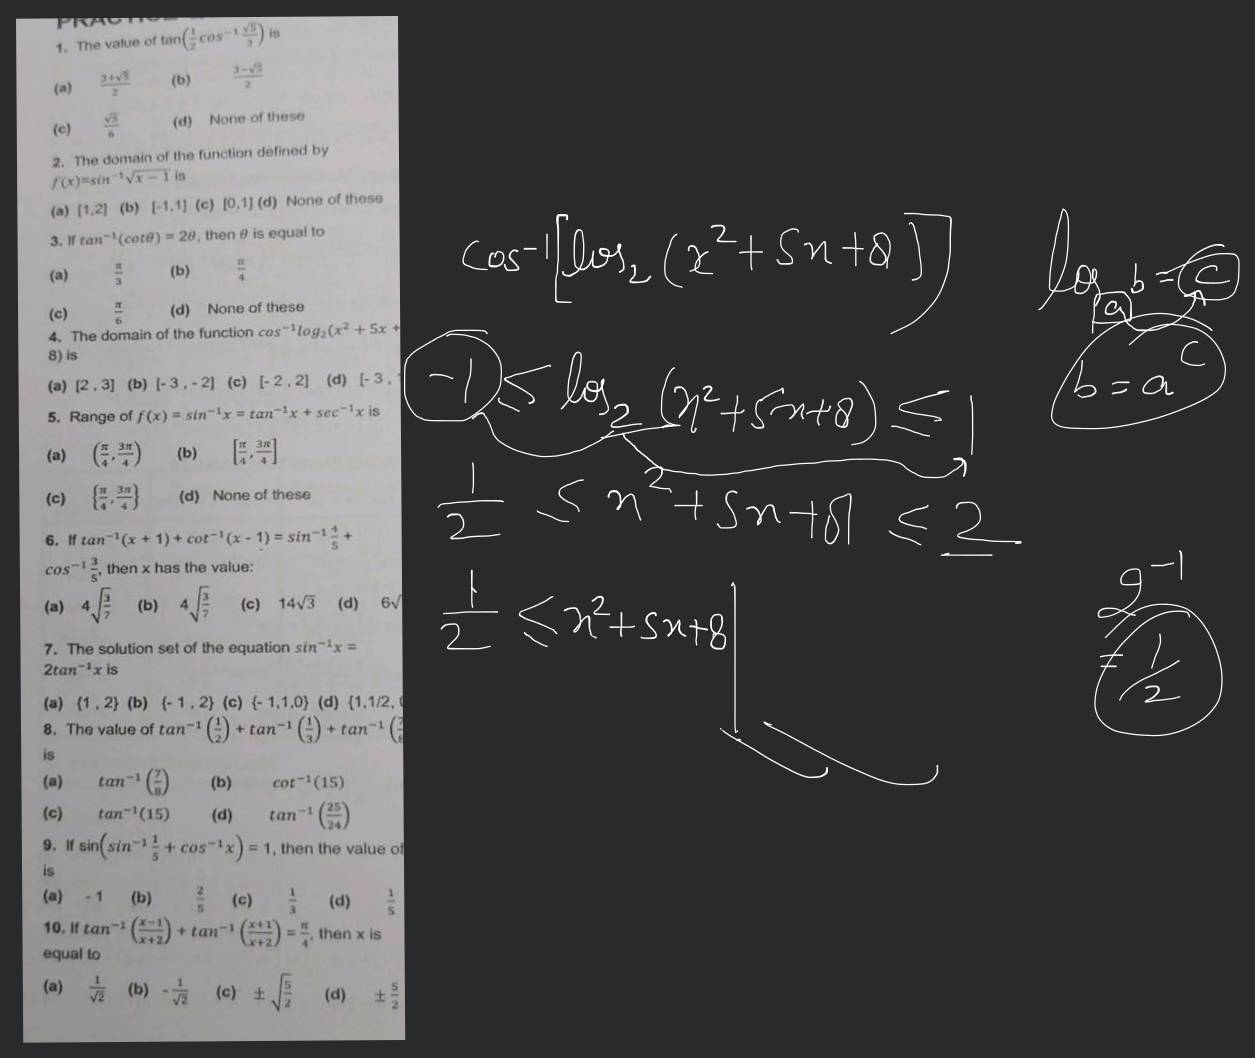 1. The value of tan(1/2 cos⁻¹ √5/3) is
(a) 3+√5/2 (b) 3−√5/2
(c) √5/6 (d) None of these
2. The domain of the function defined by
f(x)=sin⁻¹√x − 1 is
(a) [1,2] (b) [-1,1] (c) [0,1] (d) None of these
3. If tan⁻¹(cotθ) = 2θ, then θ is equal to
(a) π/3 (b) π/4
(c) π/6 (d) None of these
4. The domain of the function cos⁻¹log₂(x² + 5x +
8) is
(a) [2 , 3] (b) [- 3 , - 2] (c) [- 2 , 2] (d) [- 3 ,
5. Range of f(x) = sin⁻¹x = tan⁻¹x + sec⁻¹x is
(a) (π/4, 3π/4) (b) [π/4, 3π/4]
(c) {π/4, 3π/4} (d) None of these
6. If tan⁻¹(x + 1) + cot⁻¹(x - 1) = sin⁻¹ 4/5 +
cos⁻¹ 3/5, then x has the value:
(a) 4√3/7 (b) 4√3/7 (c) 14√3 (d) 6√
7. The solution set of the equation sin⁻¹x =
2tan⁻¹x is
(a) {1 , 2} (b) {- 1 , 2} (c) {- 1,1,0} (d) {1,1/2,
8. The value of tan⁻¹(1/2) + tan⁻¹(1/3) + tan⁻¹(7/8
is
(a) tan⁻¹(7/8) (b) cot⁻¹(15)
(c) tan⁻¹(15) (d) tan⁻¹(25/24)
9. If sin(sin⁻¹ 1/5 + cos⁻¹x) = 1, then the value of
is
(a) - 1 (b) 2/5 (c) 1/3 (d) 1/5
10. If tan⁻¹(x−1/x+2) + tan⁻¹(x+1/x+2) = π/4, then x is
equal to
(a) 1/√2 (b) -1/√2 (c) ± √5/2 (d) ± 5/2
cos⁻¹[log₂(x²+5x+8)]
-1 ≤ log₂(x²+5x+8) ≤ 1
1/2 ≤ x²+5x+8 ≤ 2
1/2 ≤ x²+5x+8
logₐ b = c
b = aᶜ
2⁻¹
= 1/2